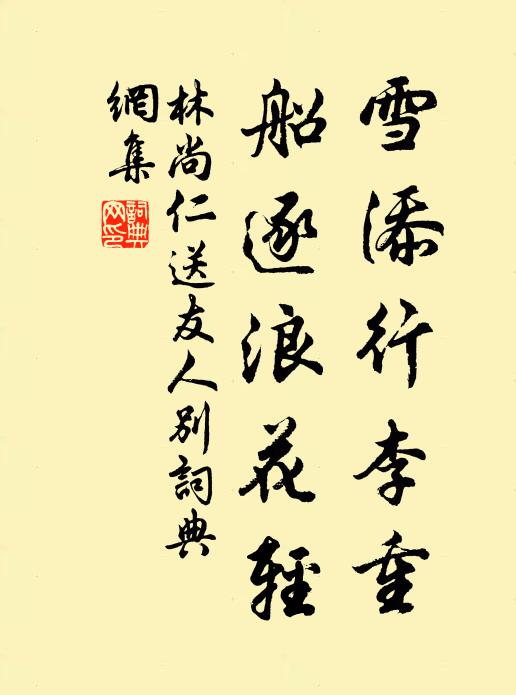 雪添行李重
船逐浪花輕
林尚仁送友人别詞典
網集
詞典
网印